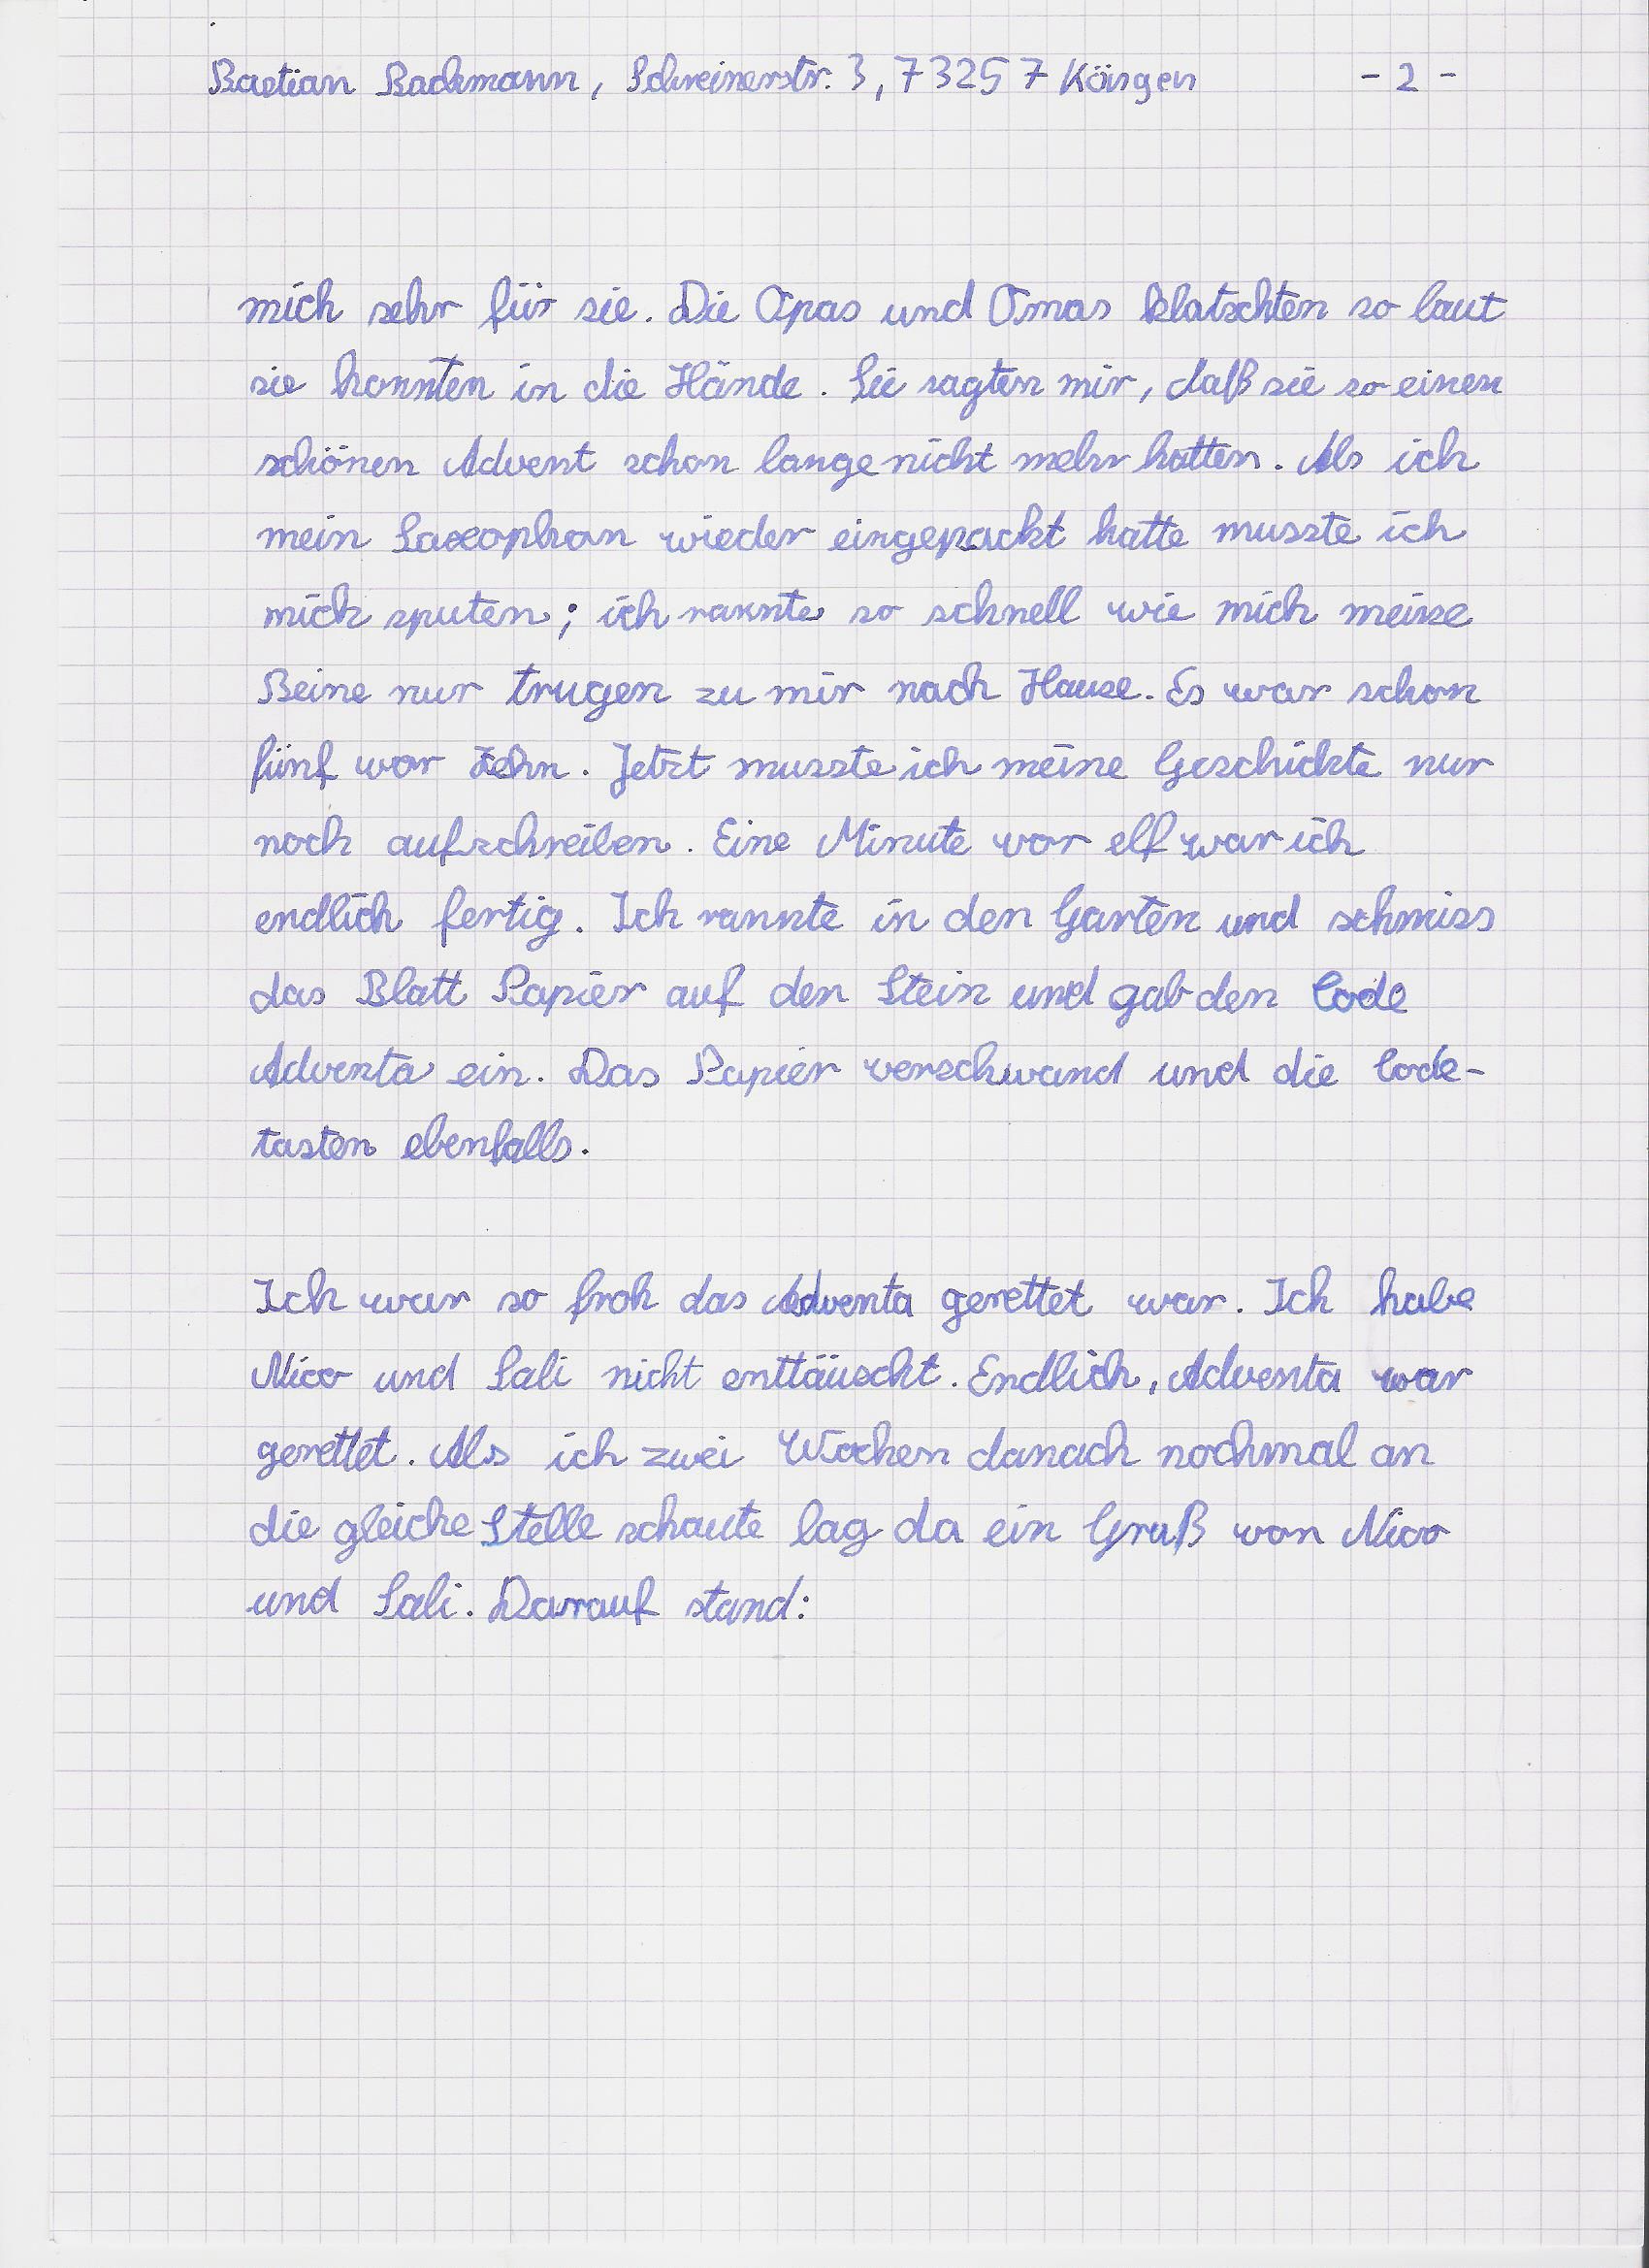 Bastian Bachmann, Schreinerstr. 3, 73257 Köngen - 2 -
mich sehr für sie. Die Opas und Omas klatschten so laut
sie konnten in die Hände. Sie sagten mir, daß sie so einen
schönen Advent schon lange nicht mehr hatten. Als ich
mein Saxophon wieder eingepackt hatte musste ich
mich sputen; ich rannte so schnell wie mich meine
Beine nur trugen zu mir nach Hause. Es war schon
fünf vor zehn. Jetzt musste ich meine Geschichte nur
noch aufschreiben. Eine Minute vor elf war ich
endlich fertig. Ich rannte in den Garten und schmiss
das Blatt Papier auf den Stein und gab den Code
Adventa ein. Das Papier verschwand und die Code-
tasten ebenfalls.
Ich war so froh das Adventa gerettet war. Ich habe
Nico und Sali nicht enttäuscht. Endlich, Adventa war
gerettet. Als ich zwei Wochen danach nochmal an
die gleiche Stelle schaute lag da ein Gruß von Nico
und Sali. Darauf stand: